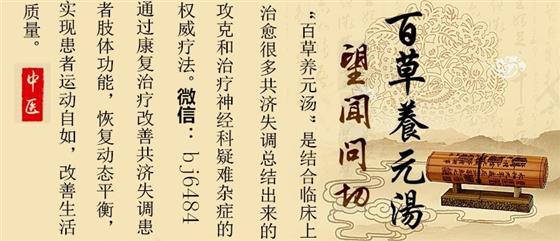 百草養元湯
望聞問切
“百草养元汤”是结合临床上
治愈很多共济失调总结出来的
攻克和治疗神经科疑难杂症的
权威疗法。微信：bj6484
通过康复治疗改善共济失调患
者肢体功能，恢复动态平衡，
实现患者运动自如，改善生活
质量。
中医